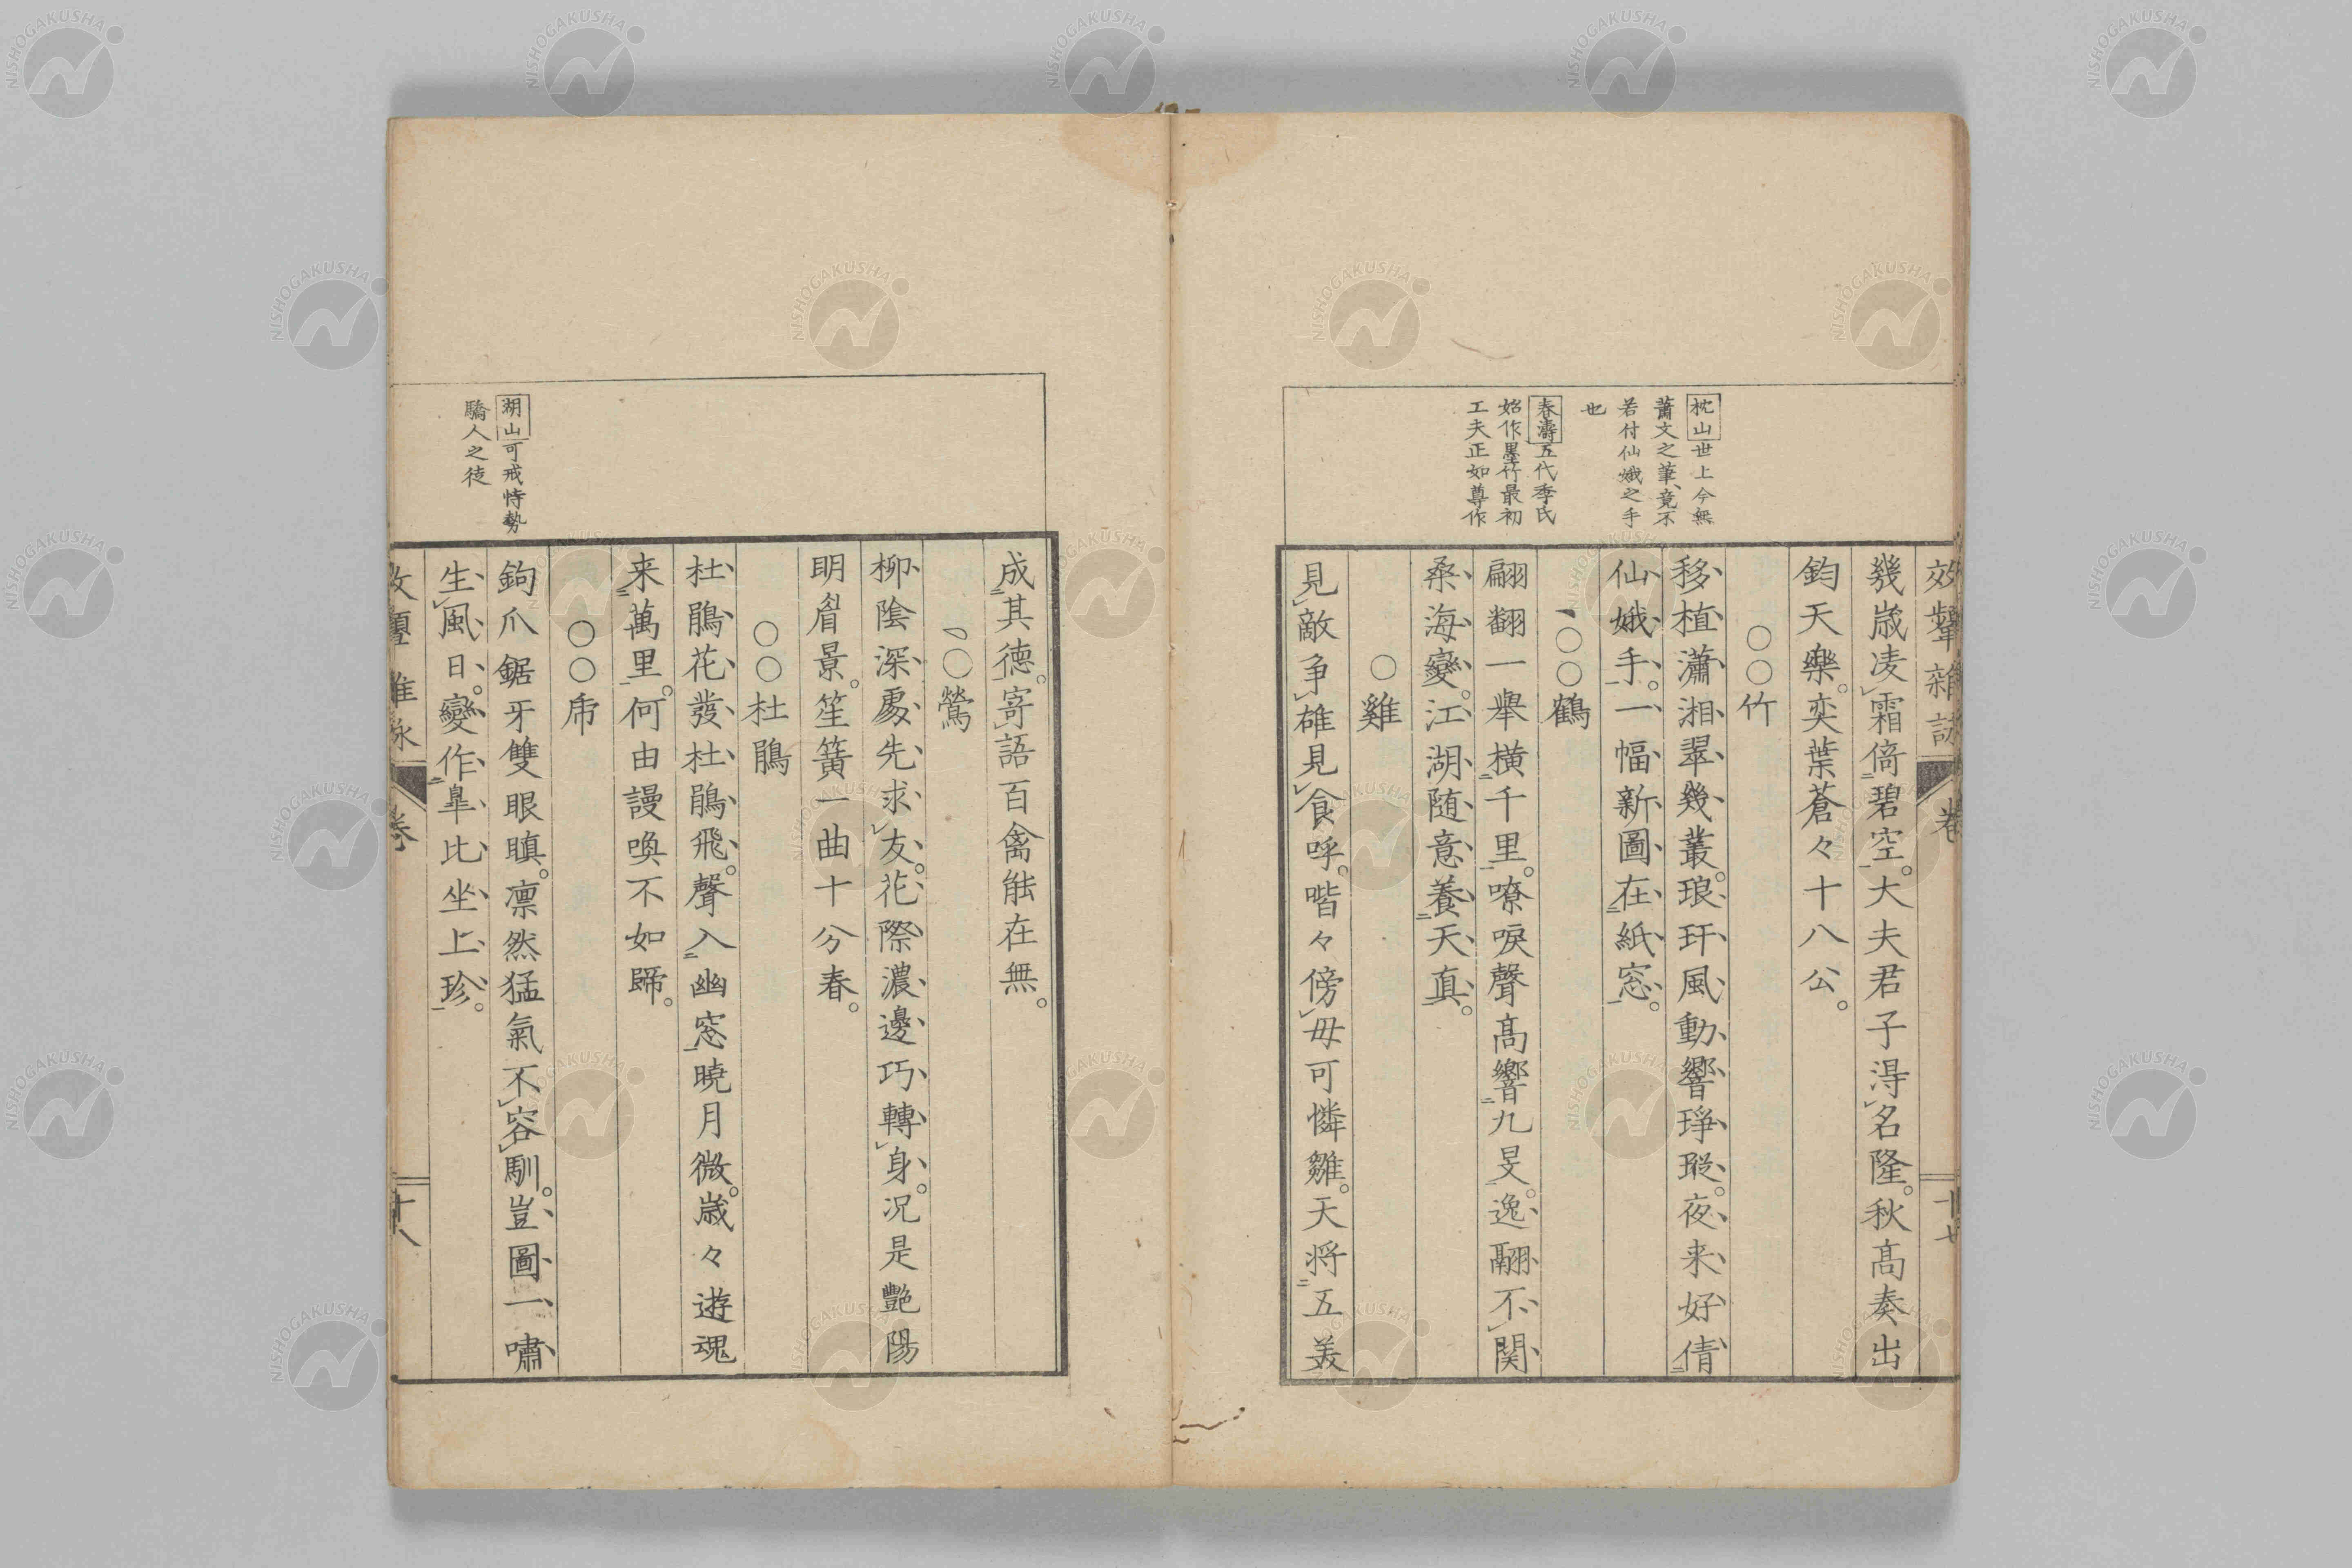 效顰雜詠 卷 十七
枕山世上今無
蕭文之筆、竟不
若付仙娥之手
也
春濤五代李氏
始作墨竹最初
工夫正如尊作
幾歳凌霜倚碧空。大夫君子淂名隆。秋髙奏出
鈞天樂。奕葉蒼々十八公。
○○竹
移植瀟湘翠幾叢。琅玕風動響琤瑽。夜来好倩
仙娥手。一幅新圖在紙窓。
○○鶴
翩翻一舉横千里。嘹唳聲髙響九旻。逸翮不関
桑海變。江湖随意養天真。
○雞
見敵争雄見食呼。喈々傍母可憐雛。天将五美
成其德。寄語百禽能在無。
○鶯
柳陰深處先求友。花際濃邊巧轉身。况是艷陽
明眉景。笙簧一曲十分春。
○○杜鵑
杜鵑花發杜鵑飛。聲入幽窓暁月微。歳々遊魂
来萬里。何由謾喚不如歸。
○○虎
湖山可戒恃勢
驕人之徒
鉤爪鋸牙雙眼瞋。凛然猛氣不容馴。豈圖一嘯
生風日。變作皐比坐上珍。
卷 十八
NISHOGAKUSHA